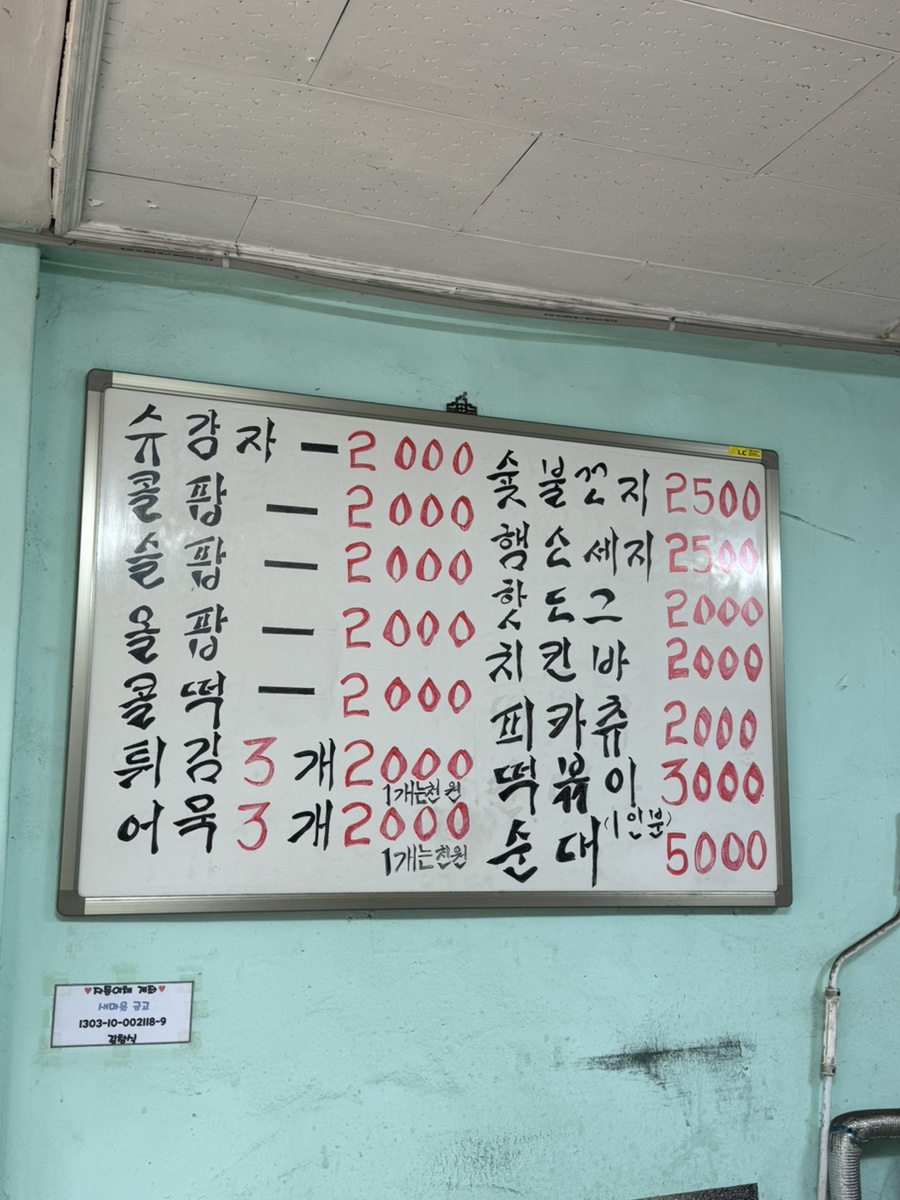 슈감자 - 2000
콜팝 - 2000
슬팝 - 2000
올팝 - 2000
콜떡 - 2000
튀김 3개 2000
1개는천원
어묵 3개 2000
1개는천원
숯불꼬지 2500
햄소세지 2500
핫도그 2000
치킨바 2000
피카츄 2000
떡볶이 3000
(1인분)
순대 5000
LC
♥자동이체 계좌♥
새마을 금고
1303-10-002118-9